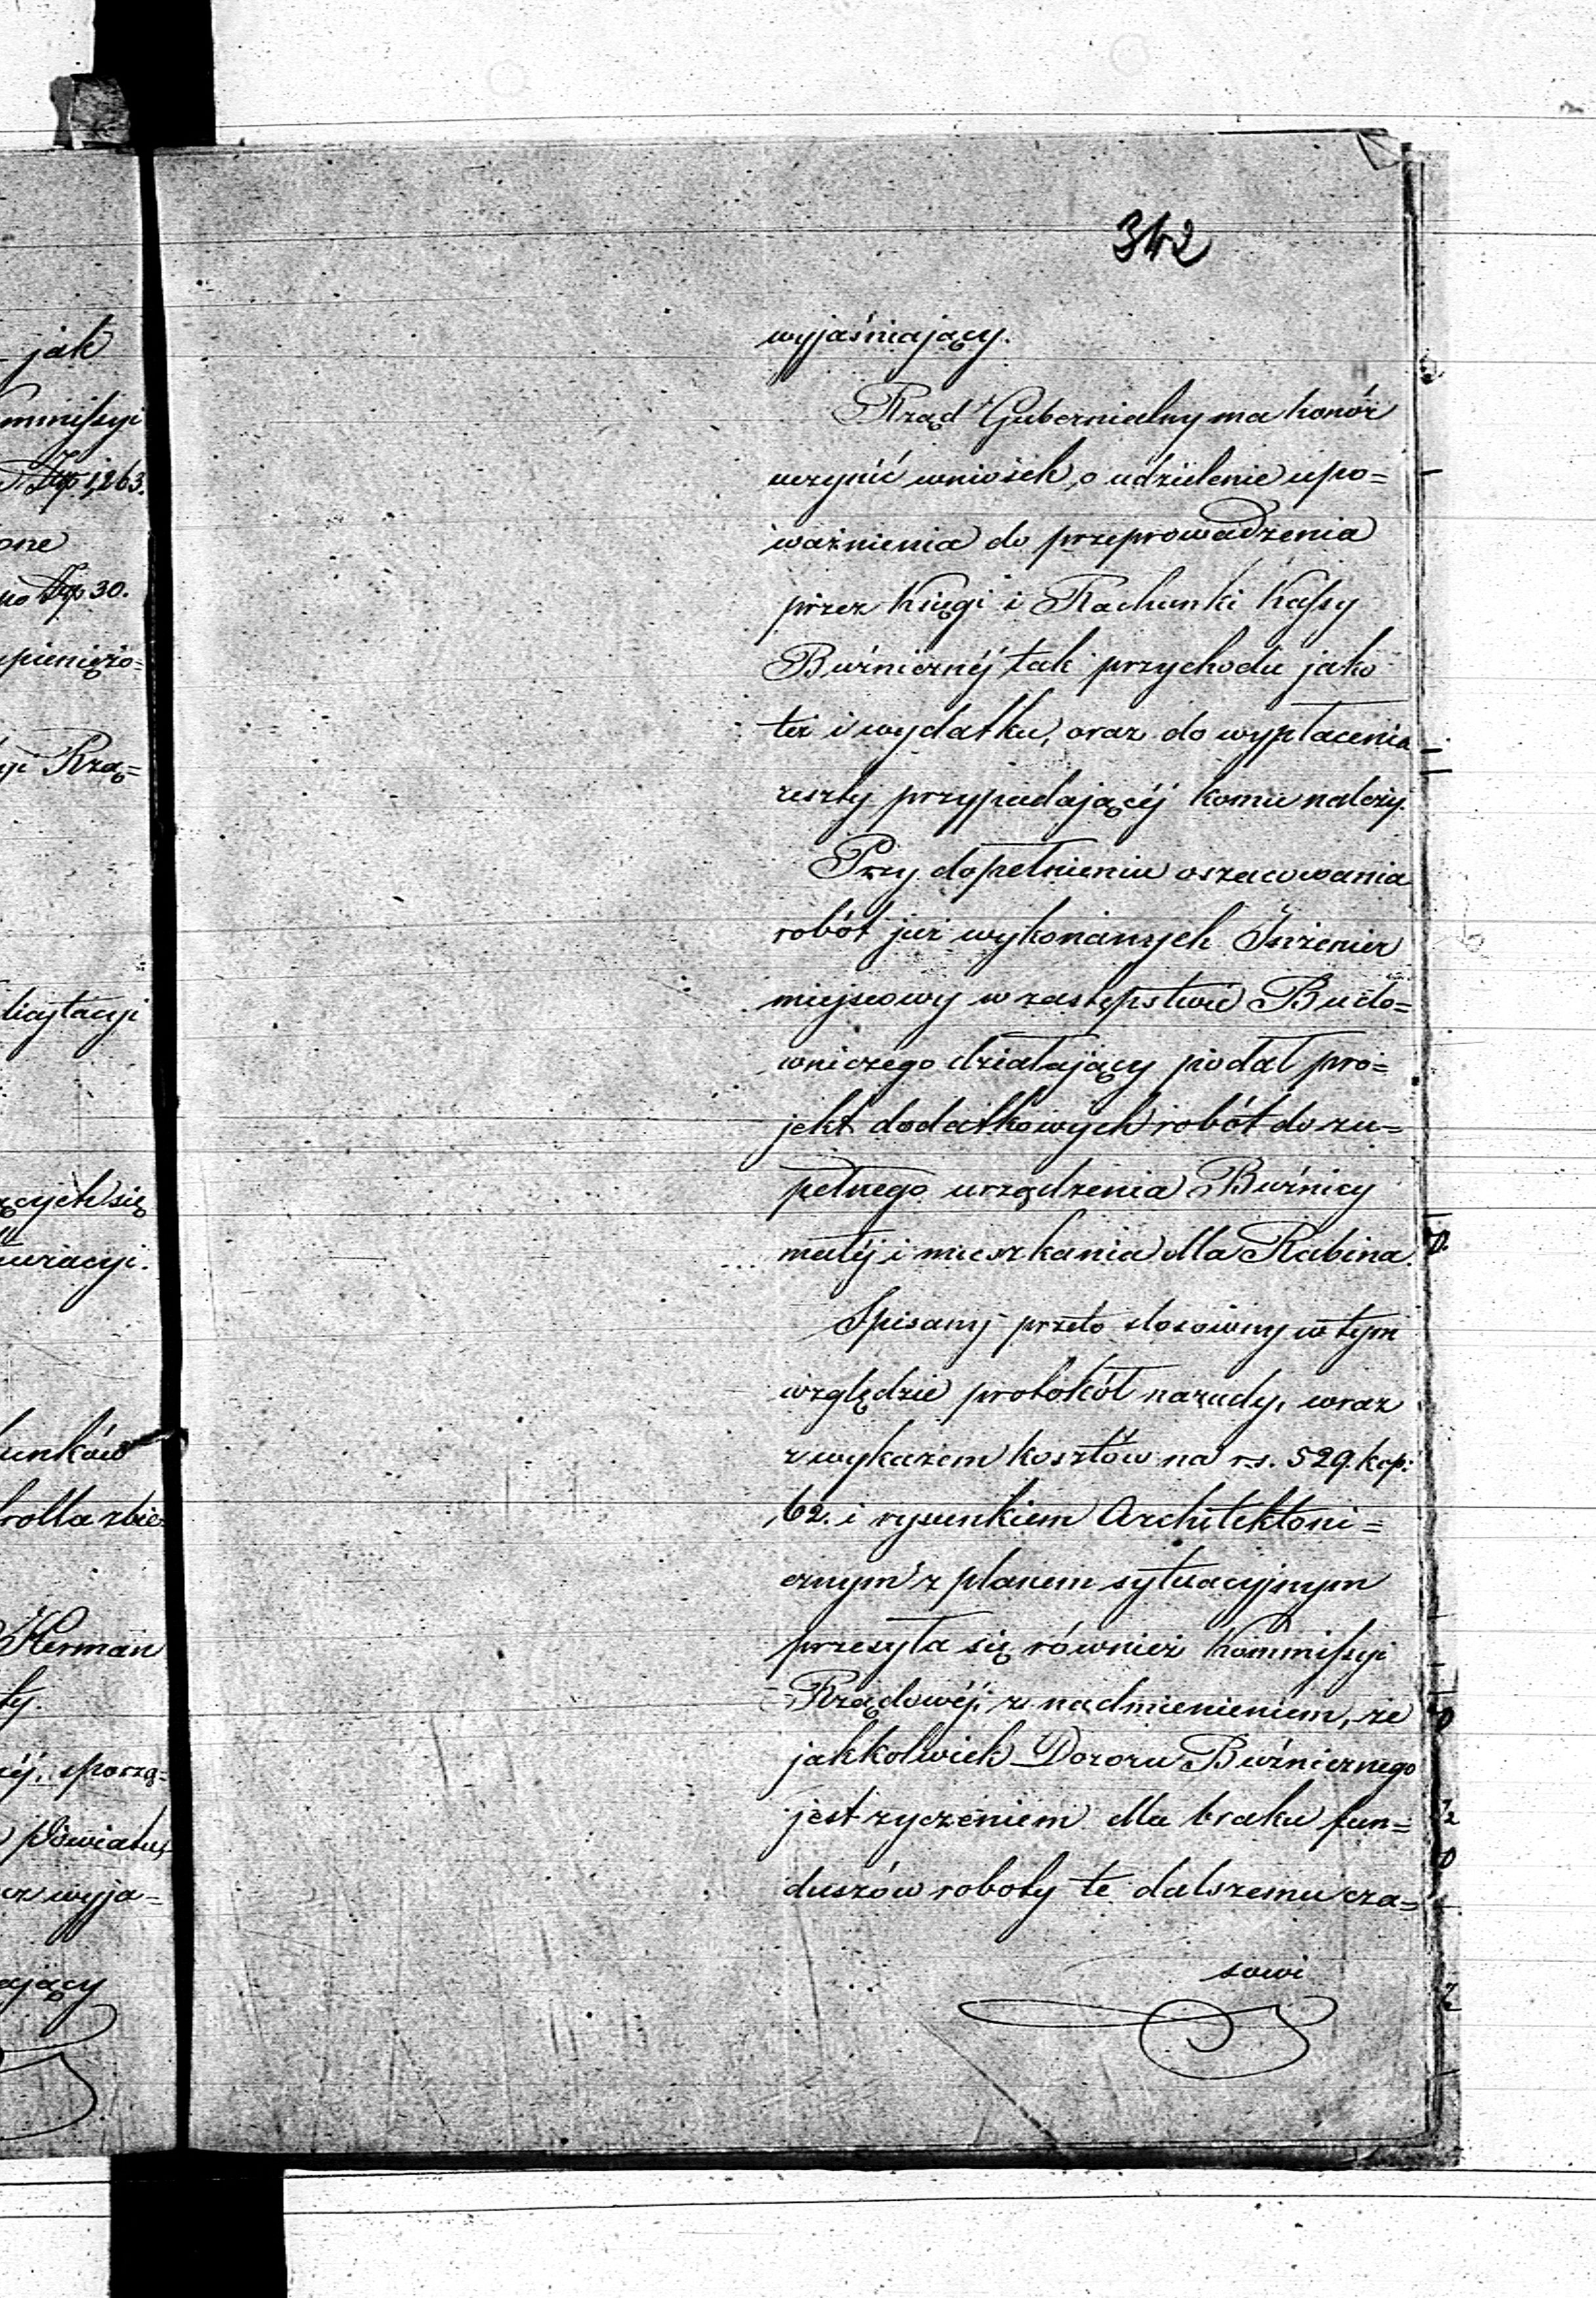 342
wyjaśniający.
Rząd Gubernialny ma honór
uczynić wniosek, o udzielenie upo=
ważnienia do przeprowadzenia
przez Księgi i Rachunki Kassy
Bużniczněj tak przychodu jako
też i wydatku, oraz do wypłacenia
reszty przypadającěj komu należy.
Przy dopełnieniu oszacowania
robót już wykonanych Inżenier
miejscowy w zastępstwie Budo=
wniczego działający podał pro=
jekt dodatkowych robót do zu=
pełnego urządzenia Bużnicy
małěj i mieszkania dla Rabina.
Spisany przeto stosowny w tym
względzie protokół narady, wraz
z wykazem kosztów na rs. 529. kop:
62. i rysunkiem Architektoni=
cznym z planem sytuacyjnym
przesyła się również Kommissyi
Rządowěj, z nadmienieniem, że
jakkolwiek Dozoru Bużnicznego
jest życzeniem dla braku fun=
duszów roboty te dalszemu cza=
sowi
jak
mmissyi
1,263.
one
no 30.
pienięźo=
yi Rzą=
licytacyi
ących się
uracyi.
unków
rolla zbie
Herman
ty.
ěj, sporzą=
Powiatu,
cz wyja=
ający